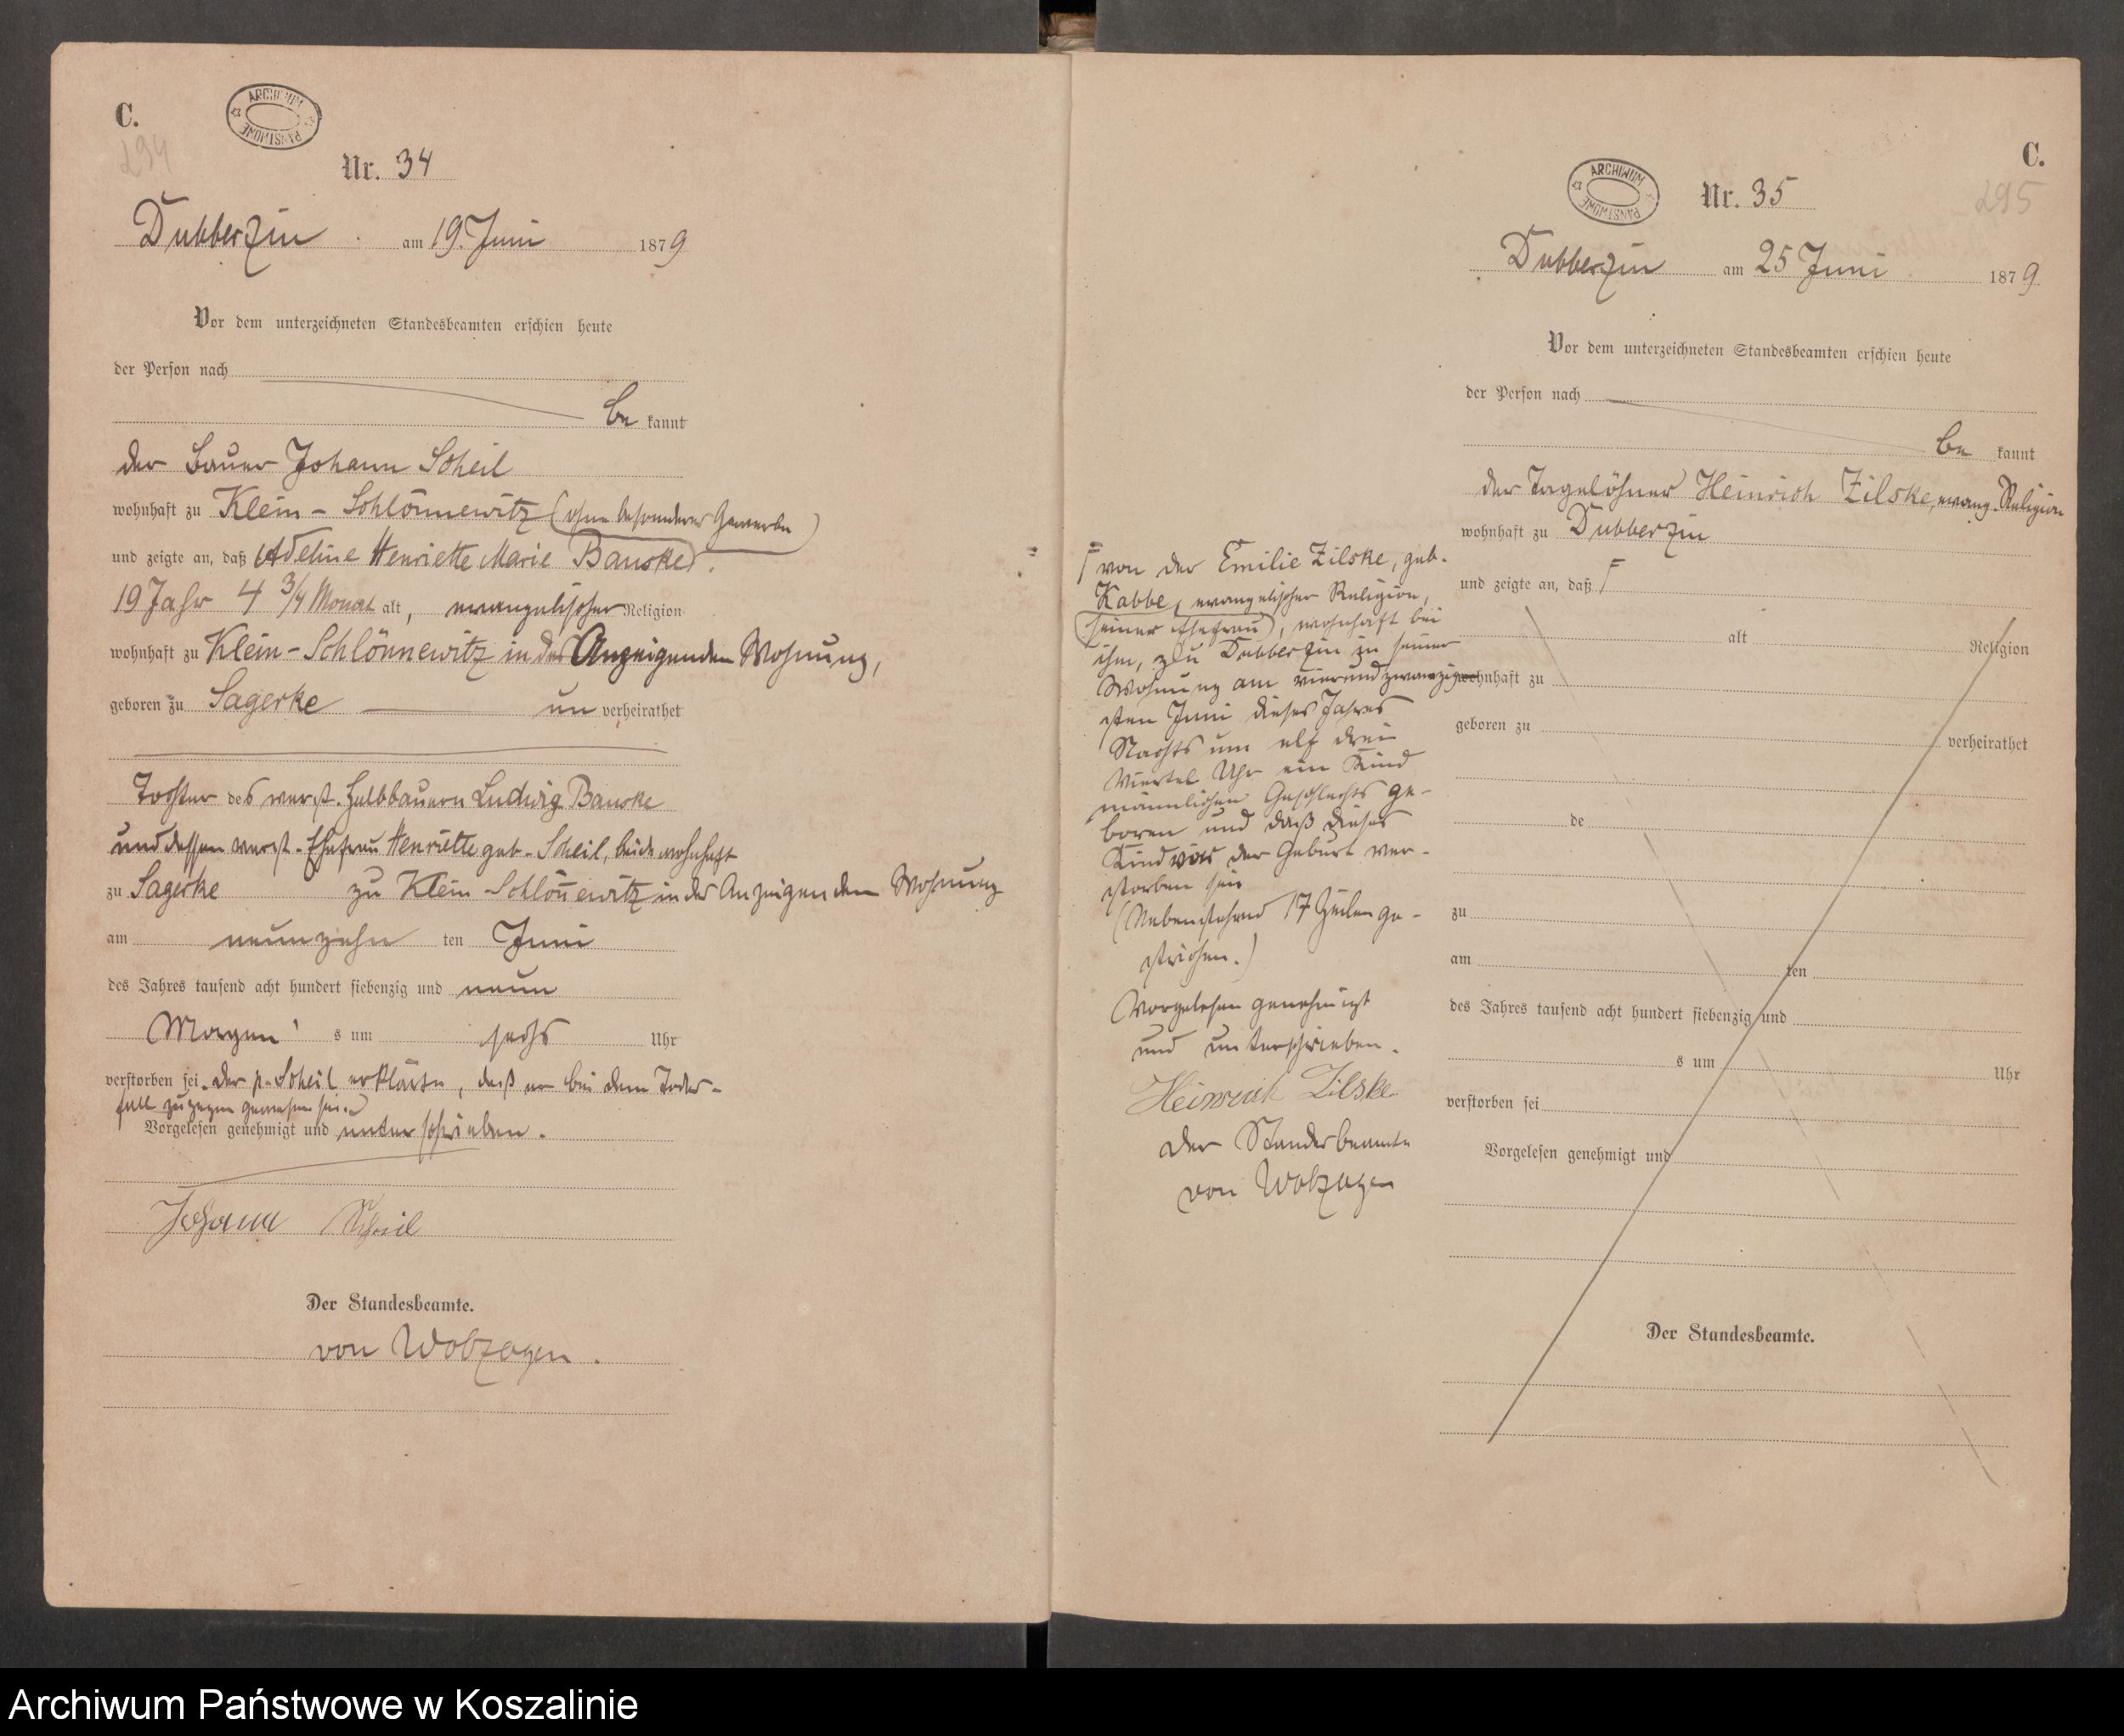 C.
ARCHIWUM PAŃSTWOWE
294
Nr. 34
Dubberzin am 19. Juni 1879
Vor dem unterzeichneten Standesbeamten erschien heute
der Person nach
be kannt
der Bauer Johann Scheil
wohnhaft zu Klein-Schlönnewitz (ohne besonderes Gewerbe)
und zeigte an, daß Adeline Henriette Marie Banske
19 Jahr 4 3/4 Monat alt, evangelischer Religion
wohnhaft zu Klein-Schlönnewitz in des Anzeigenden Wohnung,
geboren zu Sagerke un verheirathet
Tochter des verst. Halbbauern Ludwig Banske
und dessen verst. Ehefrau Henriette geb. Scheil, beide wohnhaft
zu Sagerke zu Klein-Schlönnewitz in des Anzeigenden Wohnung
am neunzehn ten Juni
des Jahres tausend acht hundert siebenzig und neun
Morgen s um sechs Uhr
verstorben sei. Der p. Scheil erklärte, daß er bei dem Todes-
fall zugegen gewesen sei.
Vorgelesen genehmigt und unterschrieben.
Johann Scheil
Der Standesbeamte.
von Wobzogen.
C.
ARCHIWUM PAŃSTWOWE
295
Nr. 35
Dubberzin am 25 Juni 1879
Vor dem unterzeichneten Standesbeamten erschien heute
der Person nach
be kannt
der Tagelöhner Heinrich Zilske, evang. Religion
wohnhaft zu Dubberzin
und zeigte an, daß F
alt Religion
wohnhaft zu
geboren zu verheirathet
de
zu
am ten
des Jahres tausend acht hundert siebenzig und
s um Uhr
verstorben sei
Vorgelesen genehmigt und
Der Standesbeamte.
F von der Emilie Zilske, geb.
Kabbe, evangelischer Religion,
(seiner Ehefrau), wohnhaft bei
ihm, zu Dubberzin in seiner
Wohnung am vierundzwanzig-
sten Juni dieses Jahres
Nachts um elf drei
Viertel Uhr ein Kind
männlichen Geschlechts ge-
boren und daß dieses
Kind vor der Geburt ver-
storben sei
(Nebenstehend 17 Zeilen ge-
strichen.)
Vorgelesen genehmigt
und unterschrieben.
Heinrich Zilske
Der Standesbeamte
von Wobzogen
Archiwum Państwowe w Koszalinie